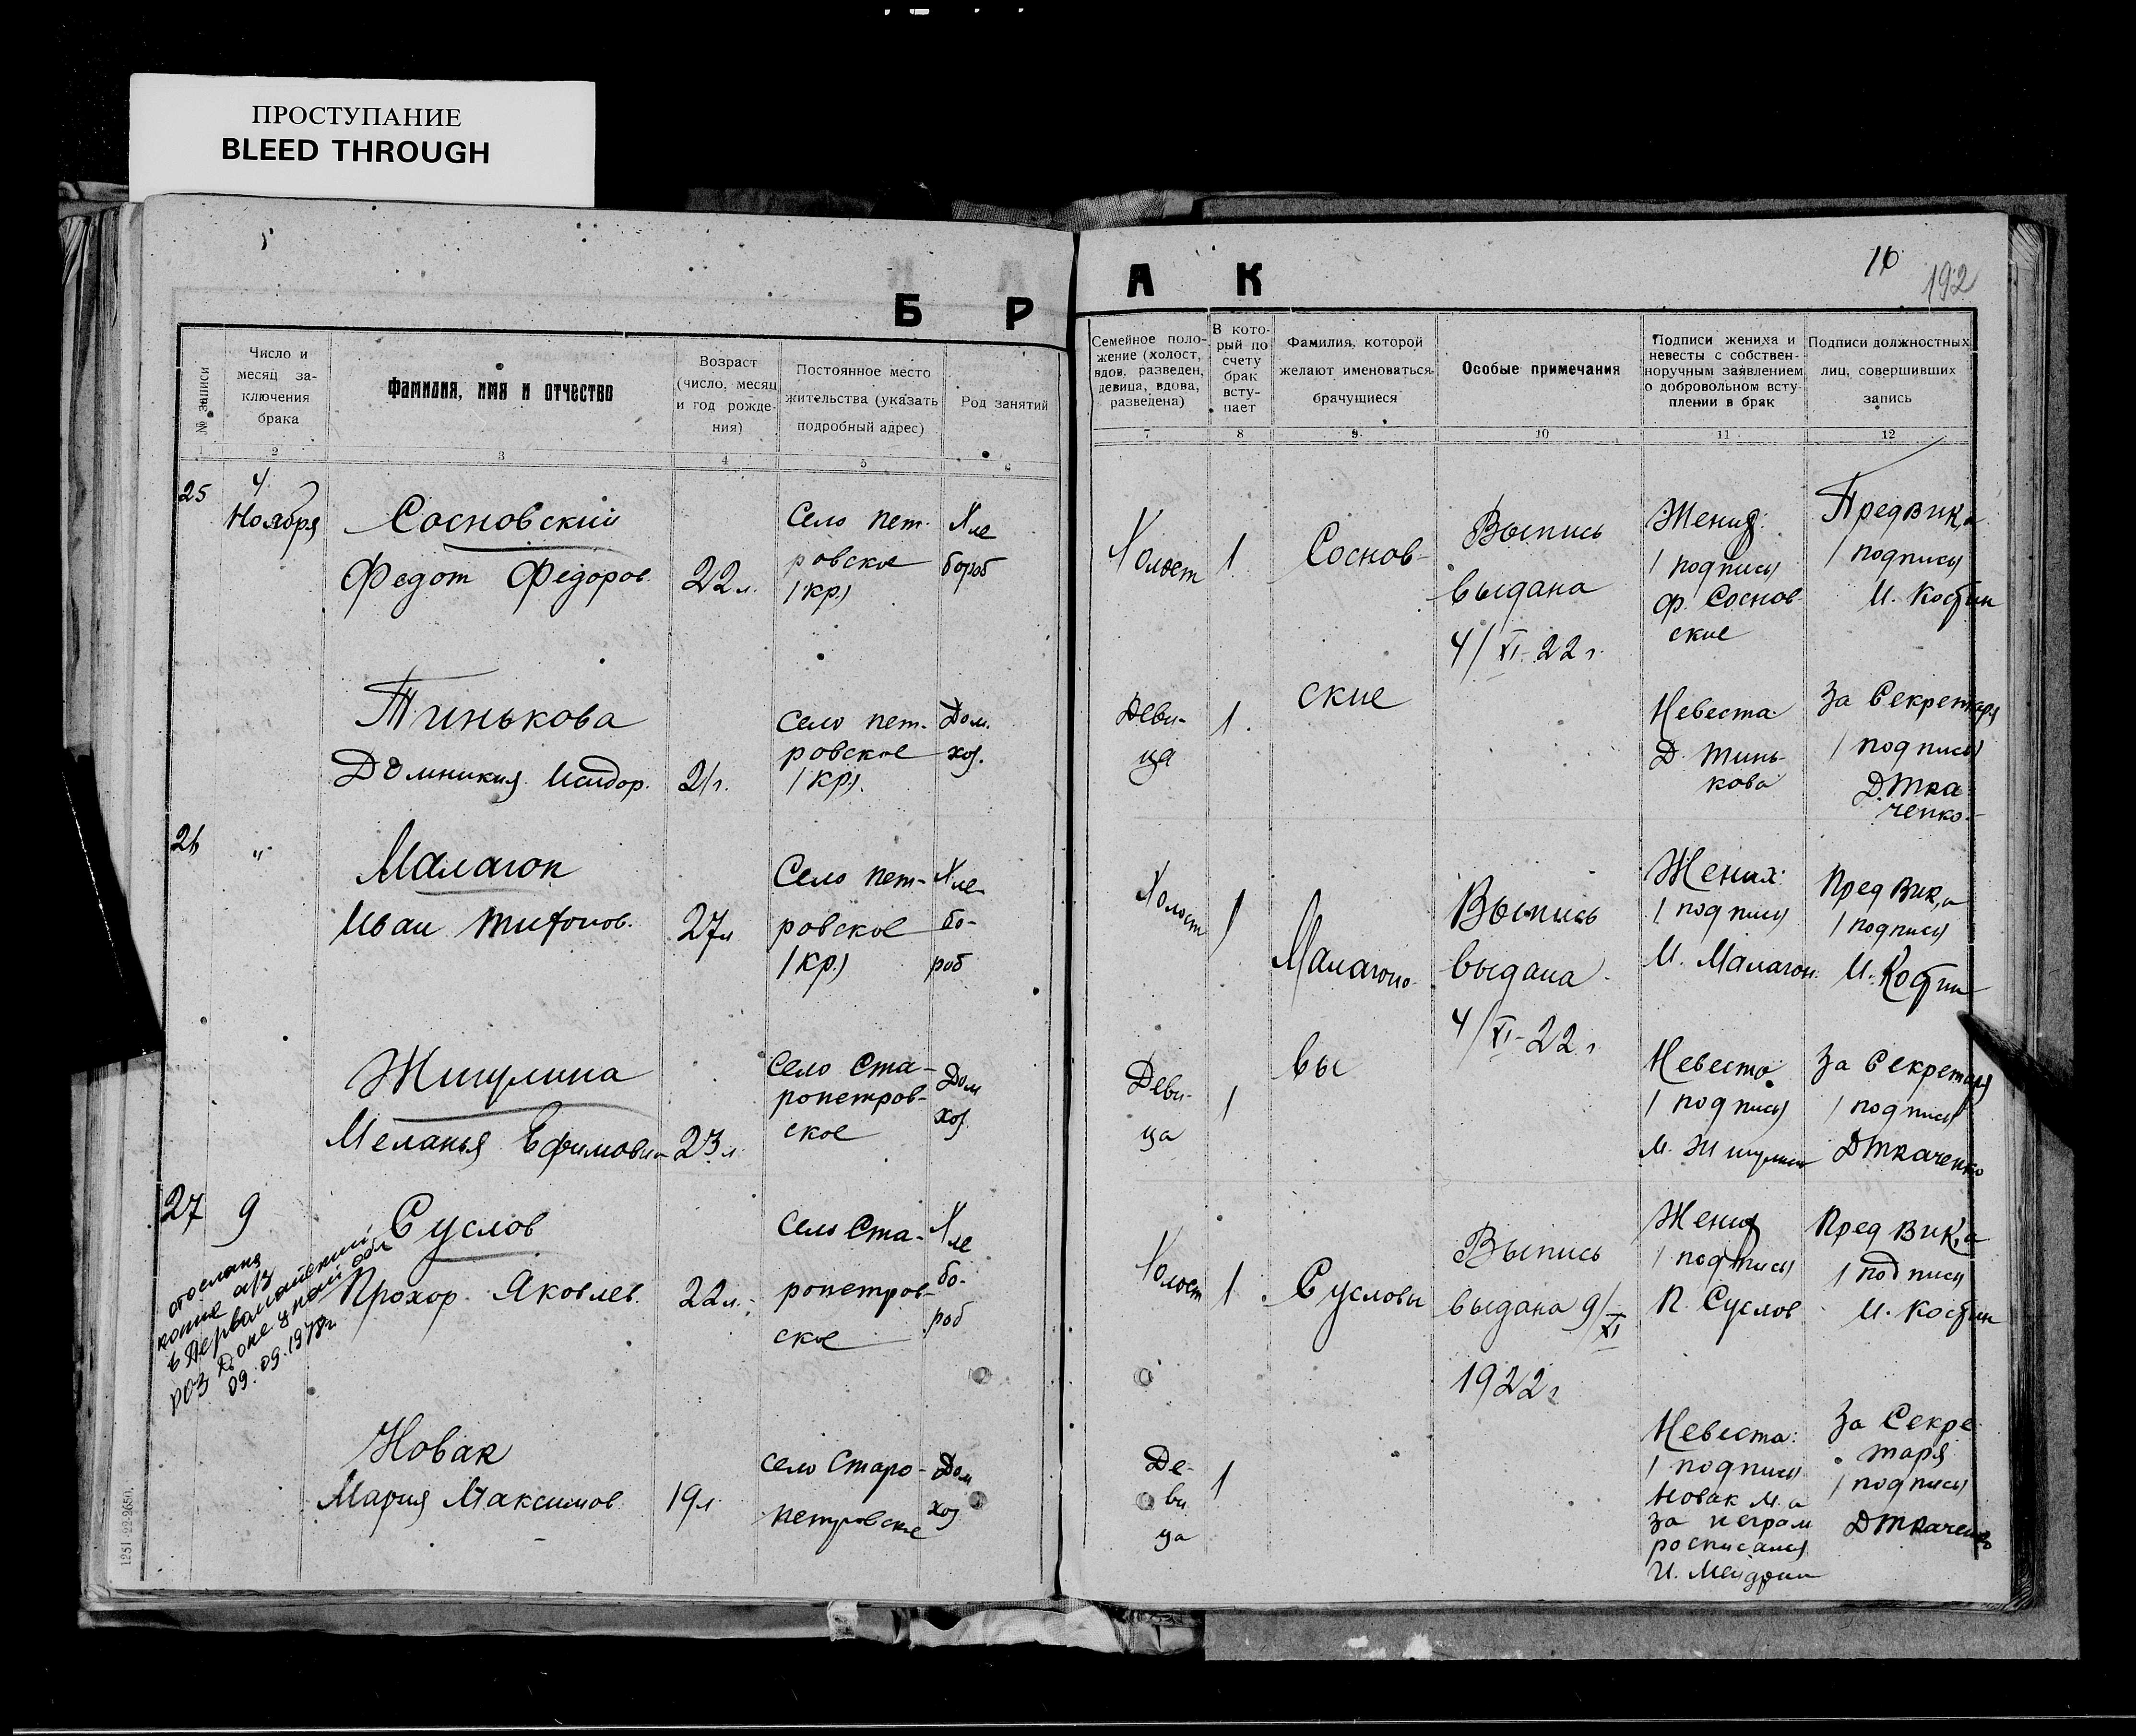 ПРОСТУПАНИЕ
BLEED THROUGH
16
192
Б Р А К
№ записи
Число и
месяц за-
ключения
брака
Фамилия, имя и отчество
Возраст
(число, месяц
и год рожде-
ния)
Постоянное место
жительства (указать
подробный адрес)
Род занятий
Семейное поло-
жение (холост,
вдов, разведен,
девица, вдова,
разведена)
В кото-
рый по
счету
брак
всту-
пает
Фамилия, которой
желают именоваться
брачущиеся
Особые примечания
Подписи жениха и
невесты с собствен-
норучным заявлением
о добровольном всту-
плении в брак
Подписи должностных
лиц, совершивших
запись
1 2 3 4 5 6 7 8 9 10 11 12
25
4
Ноября
Сосновский
Федот Федоров.
22 л.
Село Пет-
ровское
/кр/
Хле
бороб
Холост
1
Соснов-
ские
Выпись
выдана
4/XI-22 г.
Жених:
/подпись/
Ф. Соснов-
ские
Предвик,а
/подпись/
И. Костин
Тинькова
Домникия Исидор.
21 г.
Село Пет-
ровское
/кр/.
Дом.
хоз.
Деви-
ца
1.
Невеста
Д. Тинь-
кова
За Секретаря
/подпись/
Д.Тка
ченко
26
"
Малагон
Иван Тифонов.
27 л
Село Пет-
ровское
/кр./
Хле-
бо-
роб
Холост
1
Малагоно-
вы
Выпись
выдана
4/XI-22 г
Жених:
/подпись/
И. Малагон
Пред Вик,а
/подпись/
И. Костин
Жигулина
Меланья Ефимовн
23 л
Село Ста-
ропетров-
ское
Дом
хоз.
Деви-
ца
1
Невеста
/подпись/
М. Жигулин
За Секретаря
/подпись/
Д Ткаченко
27
9
отослана
копия а/з
в Первомайский
РОЗ Донецкой обл
09.09.1978г.
Суслов
Прохор Яковлев.
22 л.
Село Ста-
ропетров-
ское
Хле
бо-
роб
Холост
1
Сусловы
Выпись
выдана 9/XI
1922 г
Жених
/подпись/
П. Суслов
Пред Вик,а
/подпись
И. Костин
Новак
Мария Максимов.
19 л
Село Старо-
петровское
Дом
хоз
Де-
ви
ца
1
Невеста:
/подпись
Новак М. а
за неграм
росписался
За Секре
таря
/подпись/
Д Ткаченко
1251-22-2650.